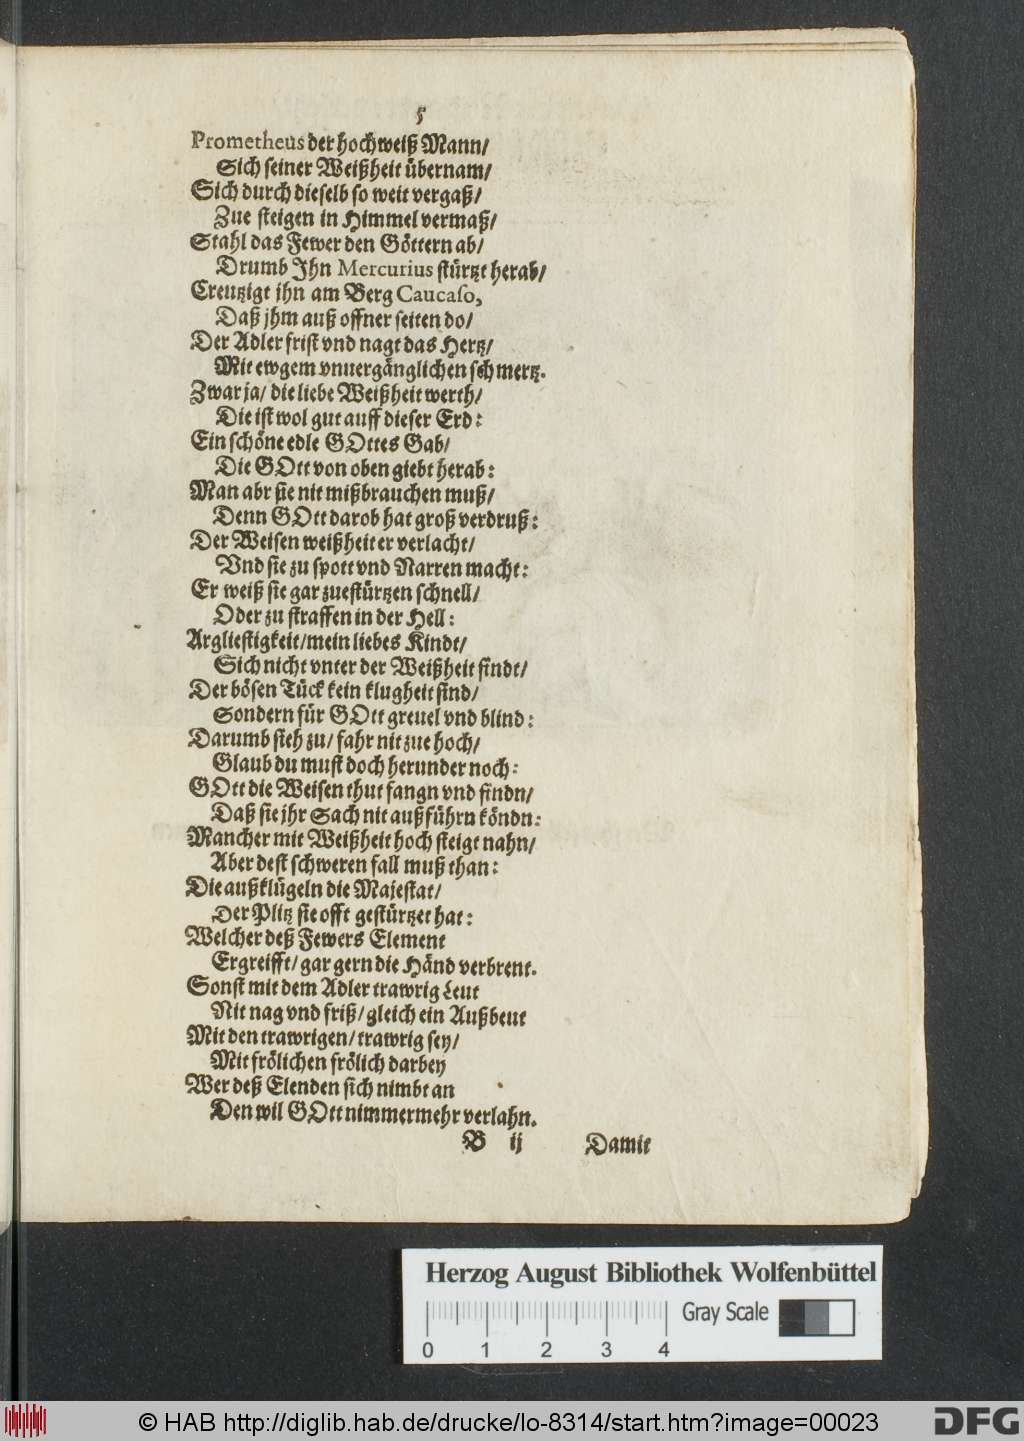 5
Prometheus der hochweiß Mann/
Sich seiner Weißheit übernam/
Sich durch dieselb so weit vergaß/
Zue steigen in Himmel vermaß/
Stahl das Fewer den Göttern ab/
Drumb Ihn Mercurius stürtzt herab/
Creutzigt jhn am Berg Caucaso,
Daß jhm auß offner seiten do/
Der Adler frist vnd nagt das Hertz/
Mit ewgem vnuergänglichen schmertz.
Zwar ja/ die liebe Weißheit werth/
Die ist wol gut auff dieser Erd:
Ein schöne edle GOttes Gab/
Die GOtt von oben giebt herab:
Man abr sie nit mißbrauchen muß/
Denn GOtt darob hat groß verdruß:
Der Weisen weißheit er verlacht/
Vnd sie zu spott vnd Narren macht:
Er weiß sie gar zuestürtzen schnell/
Oder zu straffen in der Hell:
Argliestigkeit/ mein liebes Kindt/
Sich nicht vnter der Weißheit findt/
Der bösen Tück kein klugheit sind/
Sondern für GOtt greuel vnd blind:
Darumb sieh zu/ fahr nit zue hoch/
Glaub du must doch herunder noch:
GOtt die Weisen thut fangn vnd findn/
Daß sie jhr Sach nit außführn köndn:
Mancher mit Weißheit hoch steigt nahn/
Aber dest schweren fall muß than:
Die außklügeln die Majestat/
Der Plitz sie offt gestürtzet hat:
Welcher deß Fewers Element
Ergreifft/ gar gern die Händ verbrent.
Sonst mit dem Adler trawrig Leut
Nit nag vnd friß/ gleich ein Außbeut
Mit den trawrigen/ trawrig sey/
Mit frölichen frölich darbey
Wer deß Elenden sich nimbt an
Den wil GOtt nimmermehr verlahn.
B ij Damit
Herzog August Bibliothek Wolfenbüttel
Gray Scale
0 1 2 3 4
© HAB http://diglib.hab.de/drucke/lo-8314/start.htm?image=00023
DFG